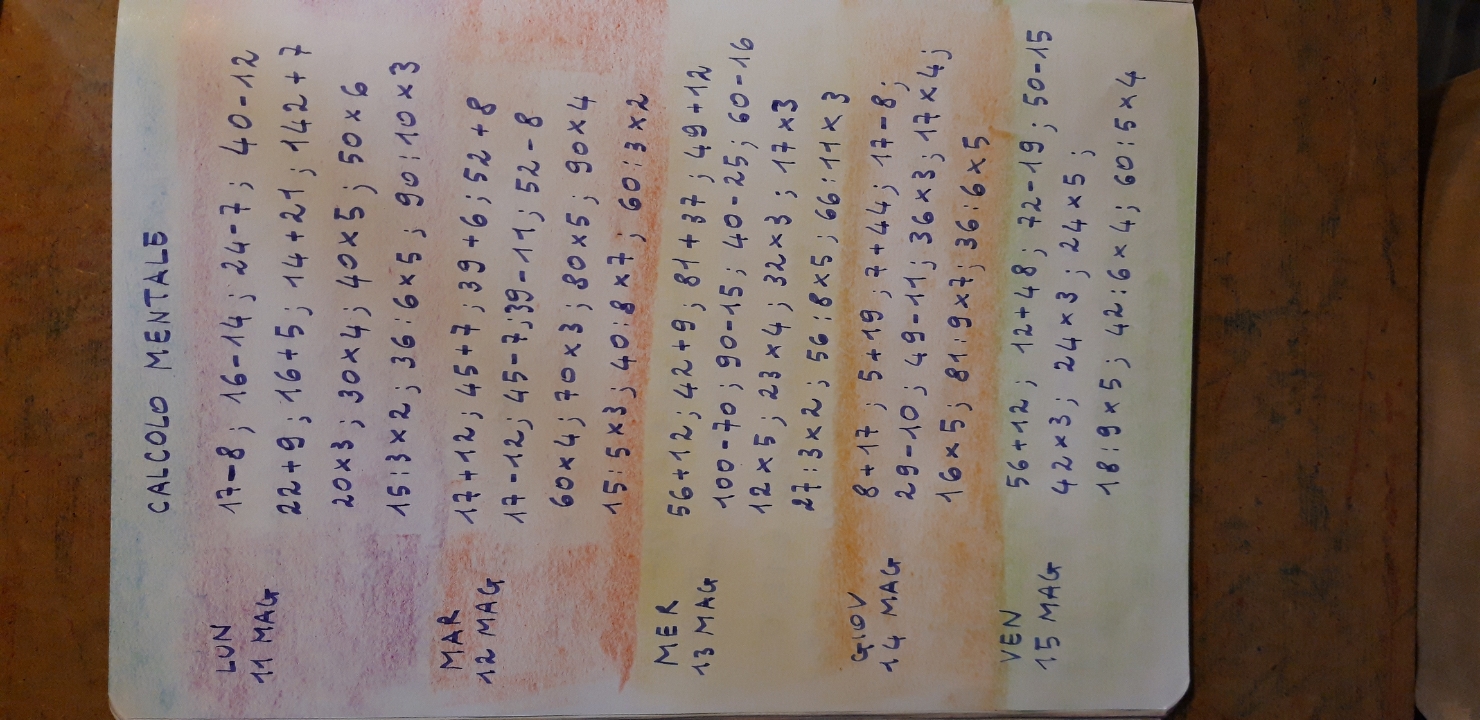 CALCOLO MENTALE
LUN
11 MAG
17-8; 16-14; 24-7; 40-12
22+9; 16+5; 14+21; 142+7
20x3; 30x4; 40x5; 50x6
15:3x2; 36:6x5; 90:10x3
MAR
12 MAG
17+12; 45+7; 39+6; 52+8
17-12; 45-7; 39-11; 52-8
60x4; 70x3; 80x5; 90x4
15:5x3; 40:8x7; 60:3x2
MER
13 MAG
56+12; 42+9; 81+37; 49+12
100-70; 90-15; 40-25; 60-16
12x5; 23x4; 32x3; 17x3
27:3x2; 56:8x5; 66:11x3
GIOV
14 MAG
8+17; 5+19; 7+44; 17-8;
29-10; 49-11; 36x3; 17x4;
16x5; 81:9x7; 36:6x5
VEN
15 MAG
56+12; 12+48; 72-19; 50-15
42x3; 24x3; 24x5;
18:9x5; 42:6x4; 60:5x4